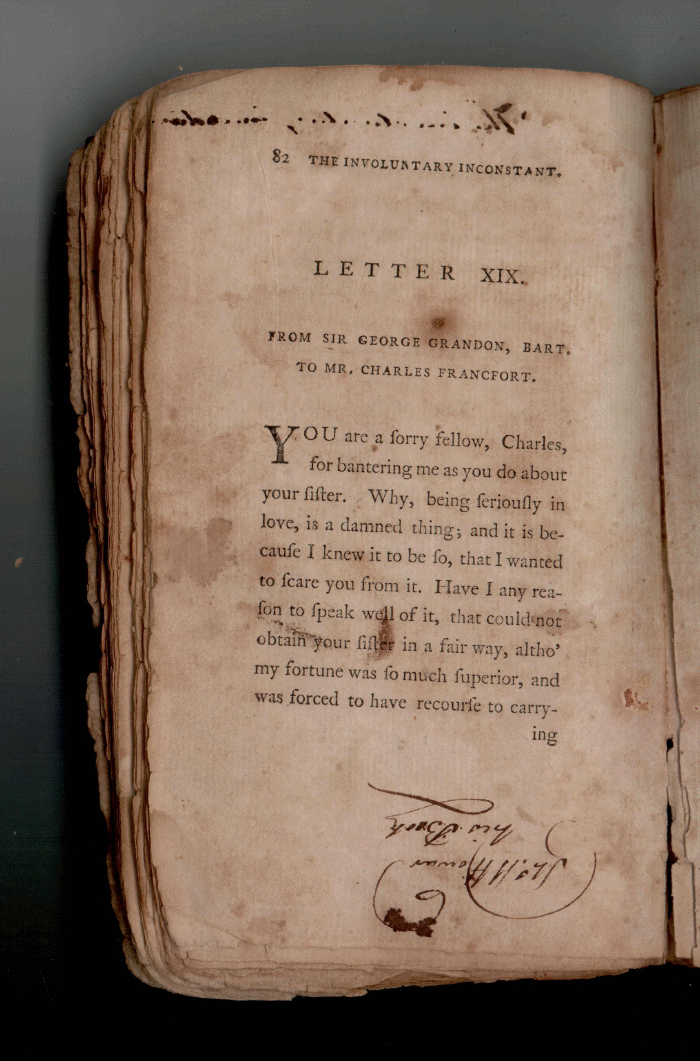 82 THE INVOLUNTARY INCONSTANT.
LETTER XIX.
FROM SIR GEORGE GRANDON, BART.
TO MR. CHARLES FRANCFORT.
YOU are a ſorry fellow, Charles,
for bantering me as you do about
your ſiſter. Why, being ſeriouſly in
love, is a damned thing; and it is be-
cauſe I knew it to be ſo, that I wanted
to ſcare you from it. Have I any rea-
ſon to ſpeak well of it, that could not
obtain your ſiſter in a fair way, altho'
my fortune was ſo much ſuperior, and
was forced to have recourſe to carry-
ing
his Book